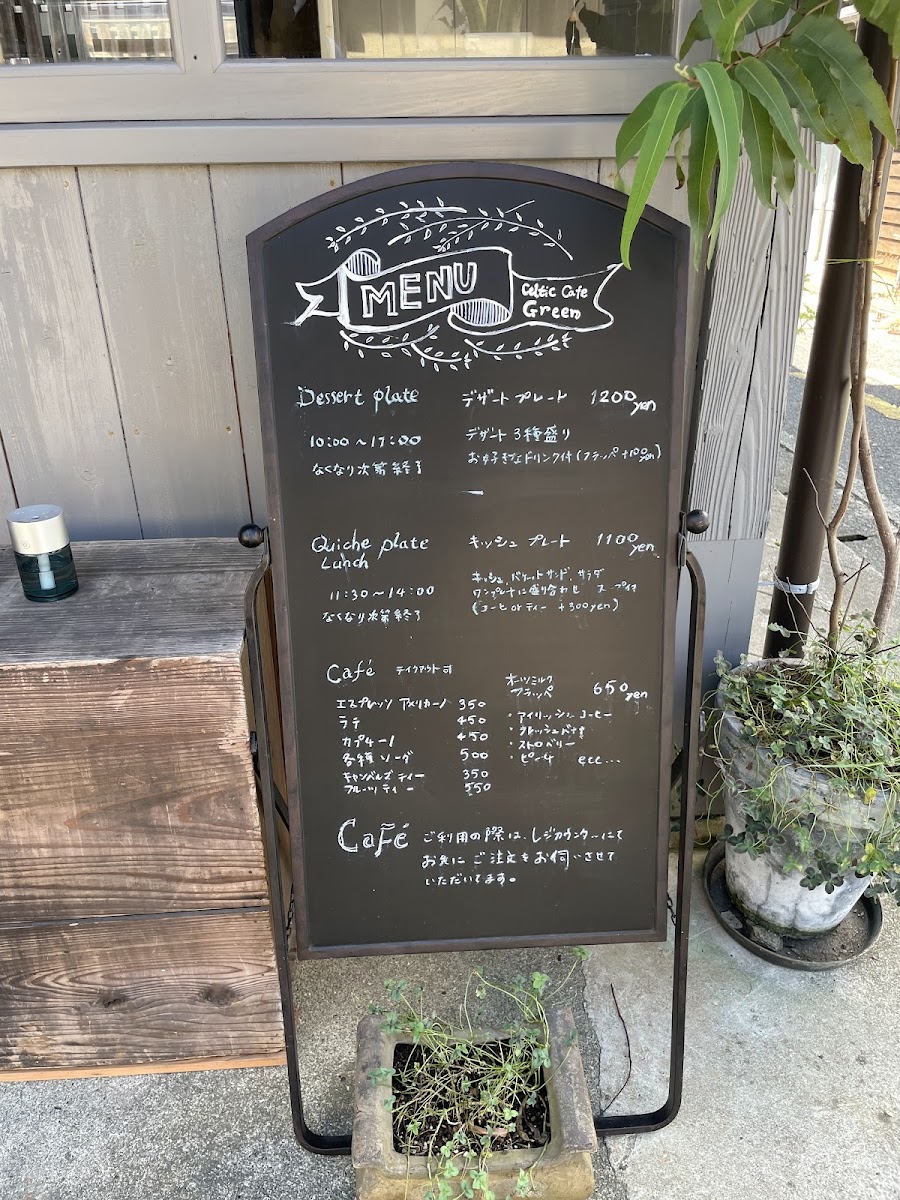 MENU
Celtic Cafe
Green
Dessert plate デザートプレート 1200yen
10:00〜17:00 デザート3種盛り
なくなり次第終了 お好きなドリンク付(フラッペ+100yen)
Quiche plate キッシュ プレート 1100yen
Lunch
11:30〜14:00
なくなり次第終了
キッシュ、バケットサンド、サラダ
ワンプレートに盛り合わせ スープ付
(コーヒ or ティー +300yen)
Café テイクアウト可
エスプレッソ アメリカーノ 350
ラテ 450
カプチーノ 450
各種ソーダ 500
キャンベルズティー 350
フルーツティー 550
オーツミルク
フラッペ 650yen
・アイリッシュコーヒー
・フレッシュバナナ
・ストロベリー
・ピーチ ecc...
Café ご利用の際は、レジカウンターにて
お先にご注文をお伺いさせて
いただいてます。